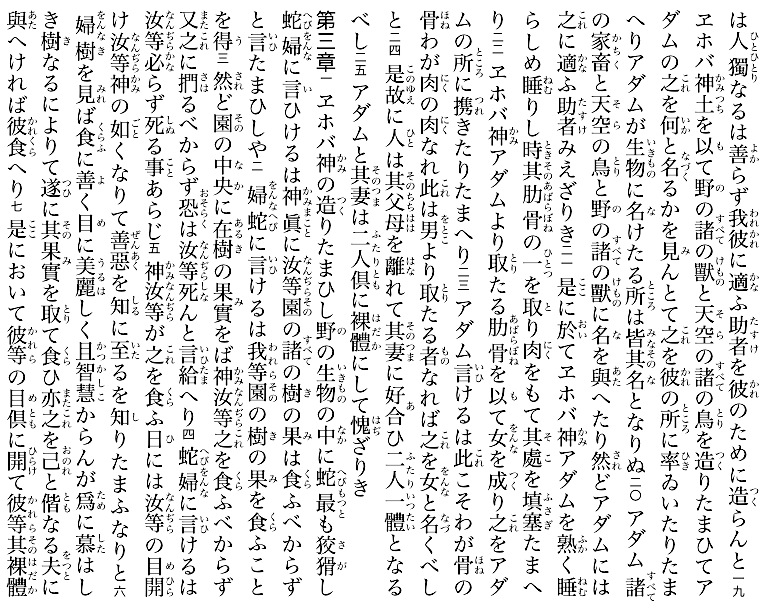 は人獨なるは善らず我彼に適ふ助者を彼のために造らんと一九
ヱホバ神土を以て野の諸の獸と天空の諸の鳥を造りたまひてア
ダムの之を何と名るかを見んとて之を彼の所に率ゐいたりたま
へりアダムが生物に名けたる所は皆其名となりぬ二〇アダム諸
の家畜と天空の鳥と野の諸の獸に名を與へたり然どアダムには
之に適ふ助者みえざりき二一是に於てヱホバ神アダムを熟く睡
らしめ睡りし時其肋骨の一を取り肉をもて其處を填塞たまへ
り二二ヱホバ神アダムより取たる肋骨を以て女を成り之をアダ
ムの所に携きたりたまへり二三アダム言けるは此こそわが骨の
骨わが肉の肉なれ此は男より取たる者なれば之を女と名くべし
と二四是故に人は其父母を離れて其妻に好合ひ二人一體となる
べし二五アダムと其妻は二人倶に裸體にして愧ざりき
第三章一ヱホバ神の造りたまひし野の生物の中に蛇最も狡猾し
蛇婦に言ひけるは神眞に汝等園の諸の樹の果は食ふべからず
と言たまひしや二婦蛇に言けるは我等園の樹の果を食ふこと
を得三然ど園の中央に在樹の果實をば神汝等之を食ふべからず
又之に捫るべからず恐は汝等死んと言給へり四蛇婦に言けるは
汝等必らず死る事あらじ五神汝等が之を食ふ日には汝等の目開
け汝等神の如くなりて善惡を知に至るを知りたまふなりと六
婦樹を見ば食に善く目に美麗しく且智慧からんが爲に慕はし
き樹なるによりて遂に其果實を取て食ひ亦之を己と偕なる夫に
與へければ彼食へり七是において彼等の目倶に開て彼等其裸體